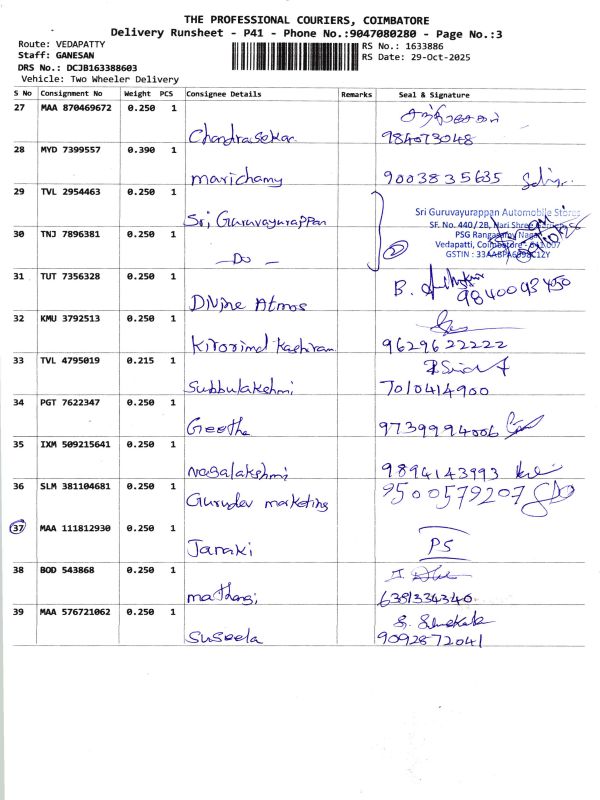 THE PROFESSIONAL COURIERS, COIMBATORE
Delivery Runsheet - P41 - Phone No.:9047080280 - Page No.:3
Route: VEDAPATTY
RS No.: 1633886
Staff: GANESAN
RS Date: 29-Oct-2025
DRS No.: DCJB163388603
Vehicle: Two Wheeler Delivery
S No Consignment No Weight PCS Consignee Details Remarks Seal & Signature
27 MAA 870469672 0.250 1
Chandrasekar
28 MYD 7399557 0.390 1
marichamy 9003835635
29 TVL 2954463 0.250 1
Sri Guruvayurappan
Sri Guruvayurappan Automobile Stores
SF. No. 440/2B, Hari Shree
PSG Rangasamy Nagar
Vedapatti, Coimbatore - 641 007
GSTIN :
30 TNJ 7896381 0.250 1
—Do— 2
31 TUT 7356328 0.250 1
Divine Atmos 9840093450
32 KMU 3792513 0.250 1
9629622222
33 TVL 4795019 0.215 1
Subbulakshmi 7010414900
34 PGT 7622347 0.250 1
Geetha 9739994006
35 IXM 509215641 0.250 1
Nagalakshmi 9894143993
36 SLM 381104681 0.250 1
Gurudev marketing 9500579207
37 MAA 111812930 0.250 1
Janaki PS
38 BOD 543868 0.250 1
mathangi 6381334340
39 MAA 576721062 0.250 1
Suseela 9092872041